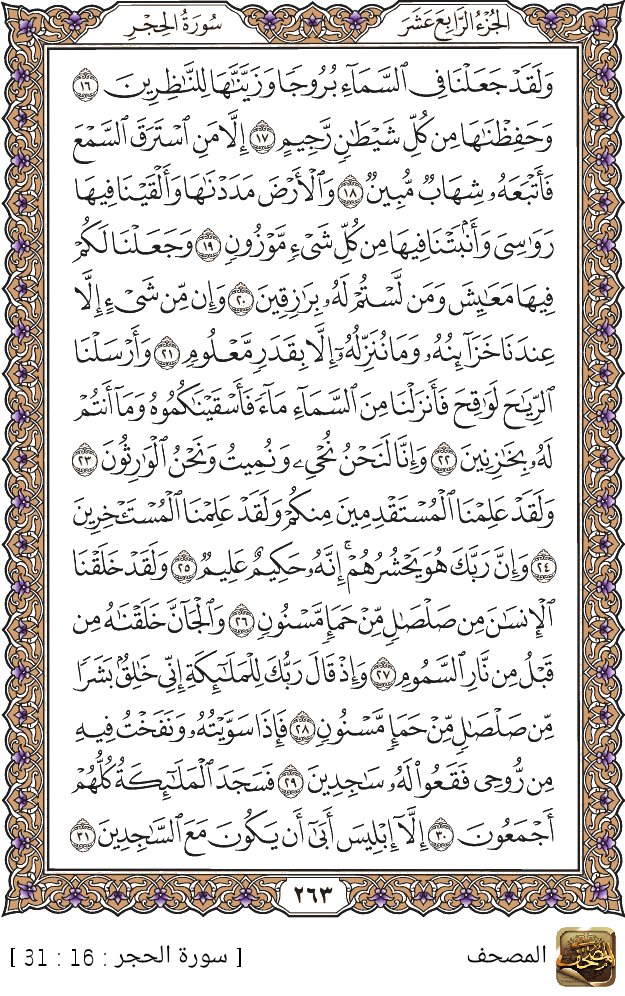 الجُزْءُ الرَّابِعَ عَشَرَ
سُورَةُ الحِجْرِ
وَلَقَدْ جَعَلْنَا فِي ٱلسَّمَآءِ بُرُوجًا وَزَيَّنَّٰهَا لِلنَّٰظِرِينَ ١٦
وَحَفِظْنَٰهَا مِن كُلِّ شَيْطَٰنٍ رَّجِيمٍ ١٧ إِلَّا مَنِ ٱسْتَرَقَ ٱلسَّمْعَ
فَأَتْبَعَهُۥ شِهَابٌ مُّبِينٌ ١٨ وَٱلْأَرْضَ مَدَدْنَٰهَا وَأَلْقَيْنَا فِيهَا
رَوَٰسِيَ وَأَنۢبَتْنَا فِيهَا مِن كُلِّ شَيْءٍ مَّوْزُونٍ ١٩ وَجَعَلْنَا لَكُمْ
فِيهَا مَعَٰيِشَ وَمَن لَّسْتُمْ لَهُۥ بِرَٰزِقِينَ ٢٠ وَإِن مِّن شَيْءٍ إِلَّا
عِندَنَا خَزَآئِنُهُۥ وَمَا نُنَزِّلُهُۥٓ إِلَّا بِقَدَرٍ مَّعْلُومٍ ٢١ وَأَرْسَلْنَا
ٱلرِّيَٰحَ لَوَٰقِحَ فَأَنزَلْنَا مِنَ ٱلسَّمَآءِ مَآءً فَأَسْقَيْنَٰكُمُوهُ وَمَآ أَنتُمْ
لَهُۥ بِخَٰزِنِينَ ٢٢ وَإِنَّا لَنَحْنُ نُحْيِۦ وَنُمِيتُ وَنَحْنُ ٱلْوَٰرِثُونَ ٢٣
وَلَقَدْ عَلِمْنَا ٱلْمُسْتَقْدِمِينَ مِنكُمْ وَلَقَدْ عَلِمْنَا ٱلْمُسْتَـْٔخِرِينَ
٢٤ وَإِنَّ رَبَّكَ هُوَ يَحْشُرُهُمْۚ إِنَّهُۥ حَكِيمٌ عَلِيمٌ ٢٥ وَلَقَدْ خَلَقْنَا
ٱلْإِنسَٰنَ مِن صَلْصَٰلٍ مِّنْ حَمَإٍ مَّسْنُونٍ ٢٦ وَٱلْجَآنَّ خَلَقْنَٰهُ مِن
قَبْلُ مِن نَّارِ ٱلسَّمُومِ ٢٧ وَإِذْ قَالَ رَبُّكَ لِلْمَلَٰٓئِكَةِ إِنِّي خَٰلِقٌۢ بَشَرًا
مِّن صَلْصَٰلٍ مِّنْ حَمَإٍ مَّسْنُونٍ ٢٨ فَإِذَا سَوَّيْتُهُۥ وَنَفَخْتُ فِيهِ
مِن رُّوحِي فَقَعُوا۟ لَهُۥ سَٰجِدِينَ ٢٩ فَسَجَدَ ٱلْمَلَٰٓئِكَةُ كُلُّهُمْ
أَجْمَعُونَ ٣٠ إِلَّآ إِبْلِيسَ أَبَىٰٓ أَن يَكُونَ مَعَ ٱلسَّٰجِدِينَ ٣١
٢٦٣
المصحف
[ سورة الحجر : 16 : 31 ]